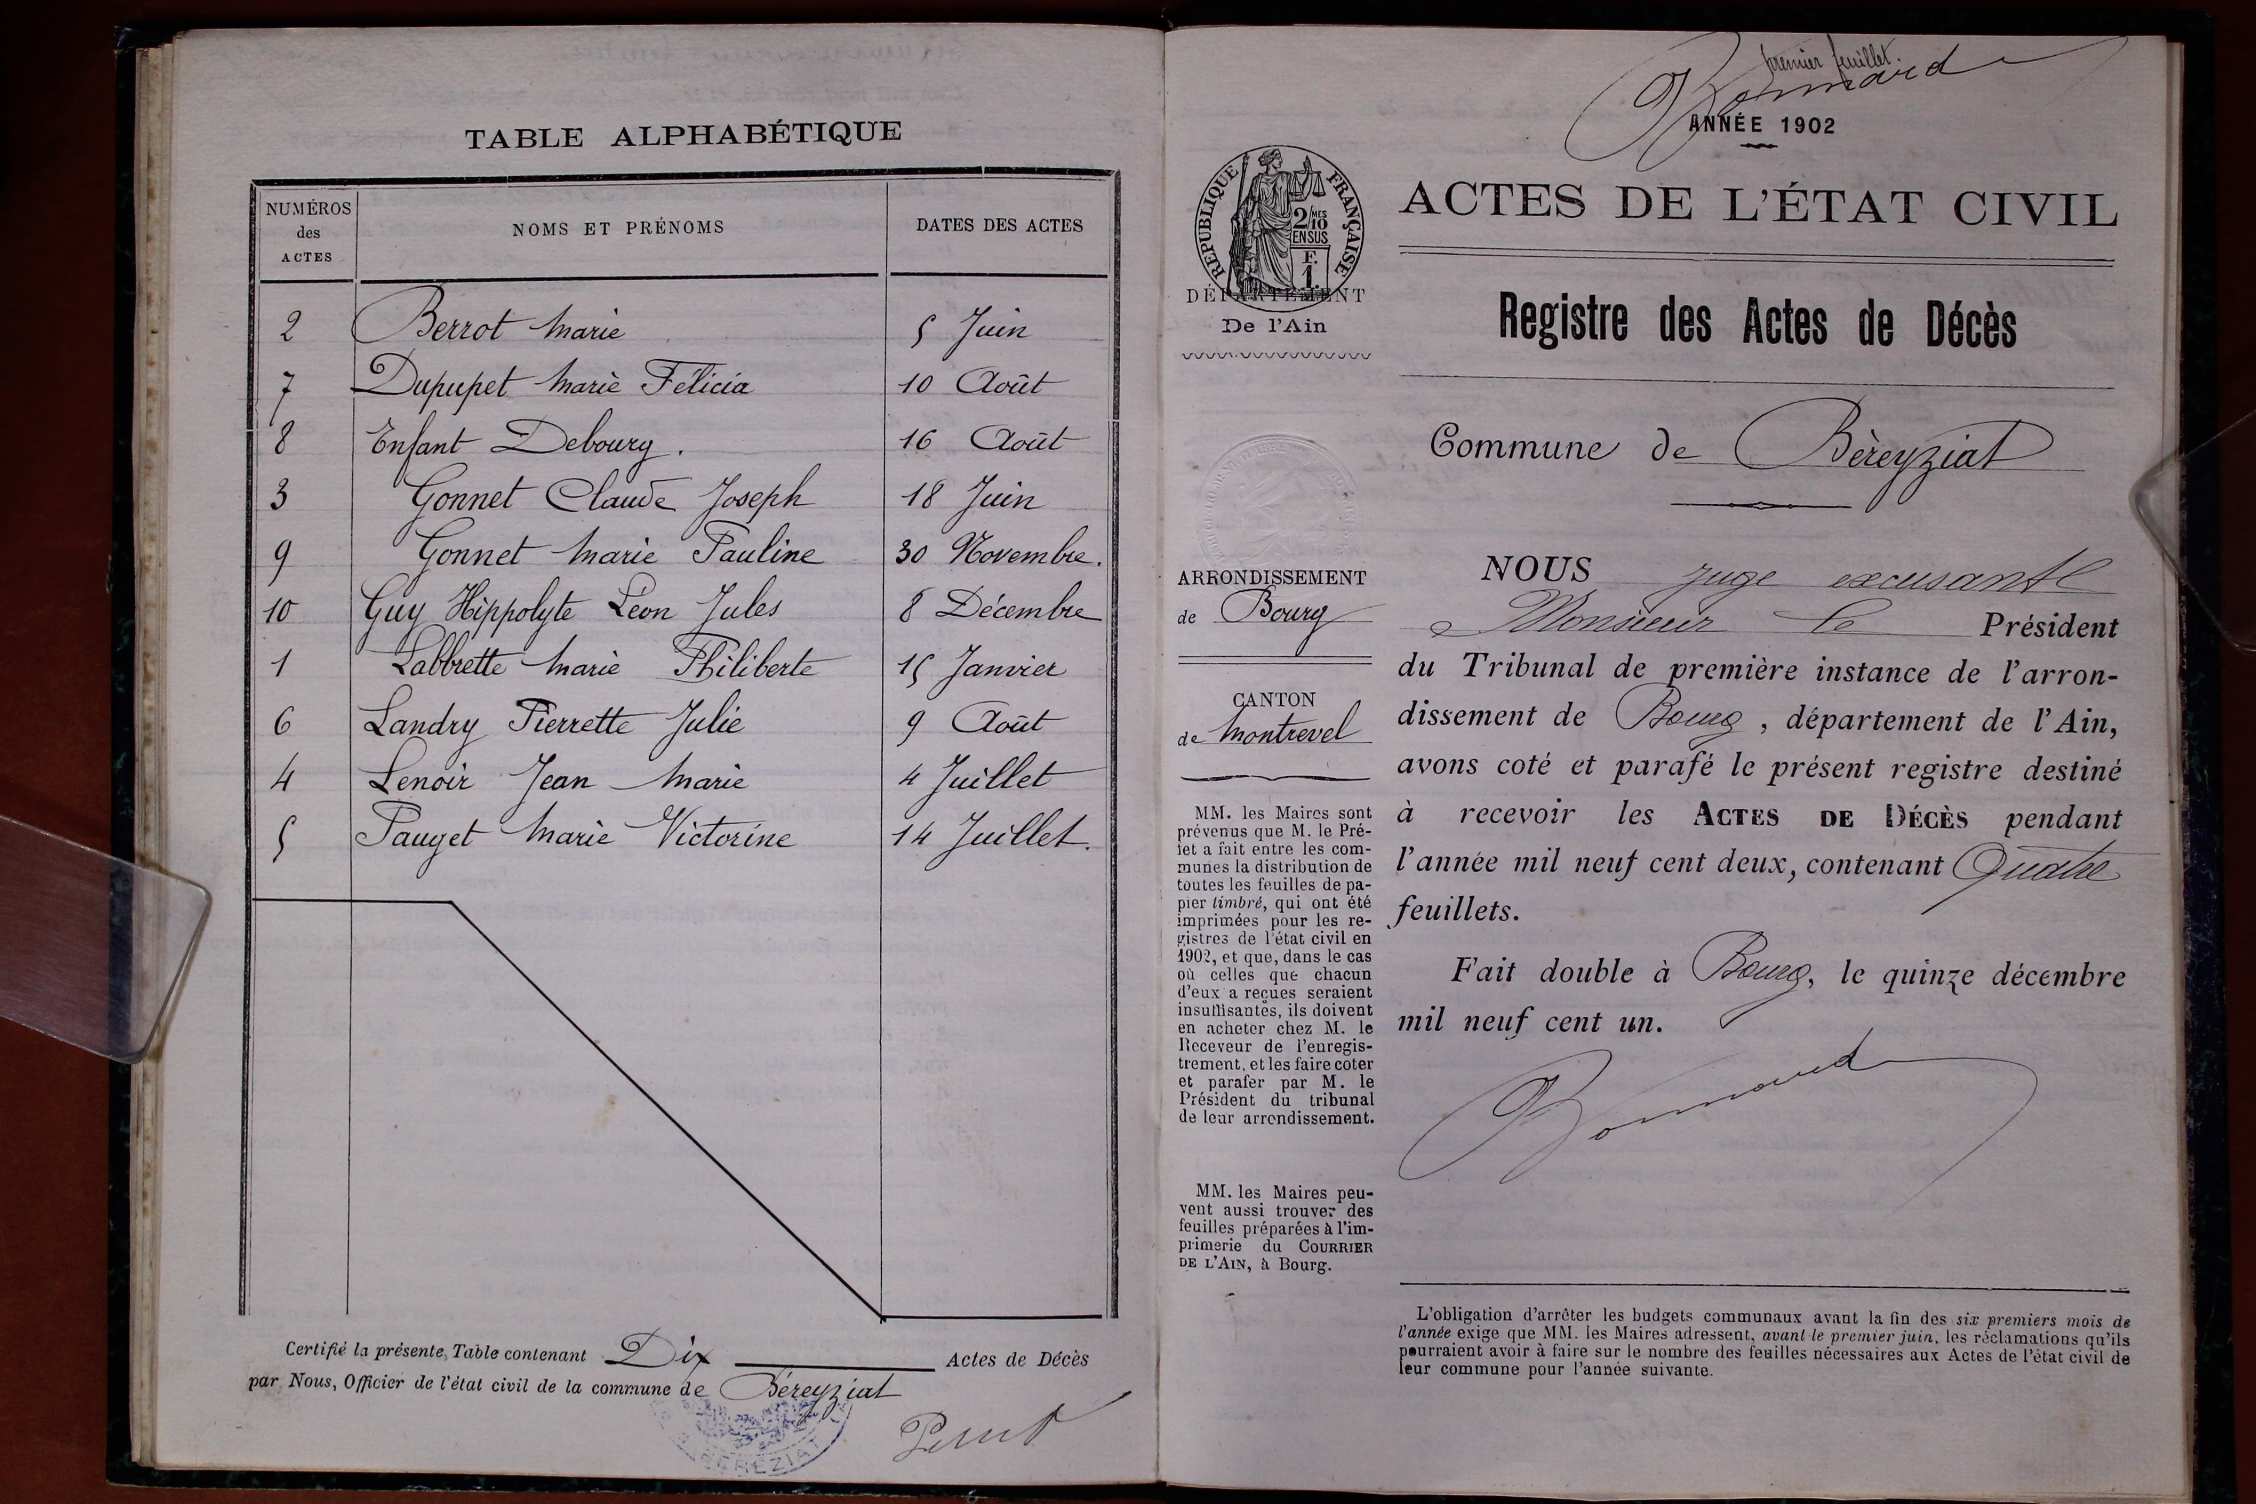 TABLE ALPHABÉTIQUE
NUMÉROS des ACTES NOMS ET PRÉNOMS DATES DES ACTES
2 Berrot Marie 5 Juin
7 Dupupet Marie Félicia 10 Août
8 Enfant Debourg. 16 Août
3 Gonnet Claude Joseph 18 Juin
9 Gonnet Marie Pauline 30 Novembre.
10 Guy Hippolyte Léon Jules 8 Décembre
1 Labbrette Marie Philiberte 15 Janvier
6 Landry Pierrette Julie 9 Août
4 Lenoir Jean Marie 4 Juillet
5 Pauget Marie Victorine 14 Juillet.
Certifié la présente Table contenant Dix Actes de Décès
par Nous, Officier de l'état civil de la commune de Béreyziat
BEREZIAT
premier feuillet.
ANNÉE 1902
RÉPUBLIQUE FRANÇAISE
2/10 MES
EN SUS
F.
1.
DÉPARTEMENT
De l'Ain
ARRONDISSEMENT
de Bourg
CANTON
de Montrevel
MM. les Maires sont
prévenus que M. le Pré-
fet a fait entre les com-
munes la distribution de
toutes les feuilles de pa-
pier timbré, qui ont été
imprimées pour les re-
gistres de l'état civil en
1902, et que, dans le cas
où celles que chacun
d'eux a reçues seraient
insuffisantes, ils doivent
en acheter chez M. le
Receveur de l'enregis-
trement, et les faire coter
et parafer par M. le
Président du tribunal
de leur arrondissement.
MM. les Maires peu-
vent aussi trouver des
feuilles préparées à l'im-
primerie du COURRIER
DE L'AIN, à Bourg.
ACTES DE L'ÉTAT CIVIL
Registre des Actes de Décès
Commune de Bèreyziat
NOUS juge excusant
Monsieur le Président
du Tribunal de première instance de l'arron-
dissement de Bourg, département de l'Ain,
avons coté et parafé le présent registre destiné
à recevoir les ACTES DE DÉCÈS pendant
l'année mil neuf cent deux, contenant Quatre
feuillets.
Fait double à Bourg, le quinze décembre
mil neuf cent un.
L'obligation d'arrêter les budgets communaux avant la fin des six premiers mois de
l'année exige que MM. les Maires adressent, avant le premier juin, les réclamations qu'ils
pourraient avoir à faire sur le nombre des feuilles nécessaires aux Actes de l'état civil de
leur commune pour l'année suivante.